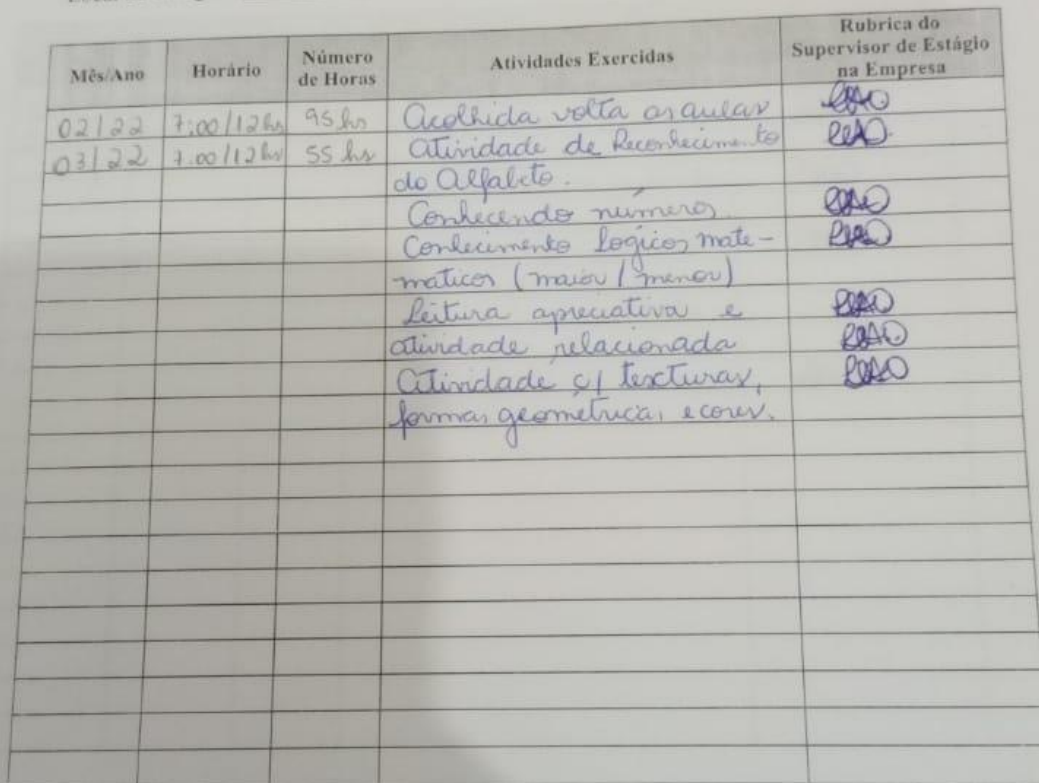 Mês/Ano Horário Número de Horas Atividades Exercidas Rubrica do Supervisor de Estágio na Empresa
02/22 7:00/12hs 95 hs Acolhida volta as aulas
03/22 7:00/12hs 55 hs Atividade de Reconhecimento
do Alfabeto.
Conhecendo números.
Conhecimento logicos mate-
maticos (maior/menor)
Leitura apreciativa e
atividade relacionada
Atividade c/ texturas,
formas geometricas e cores.